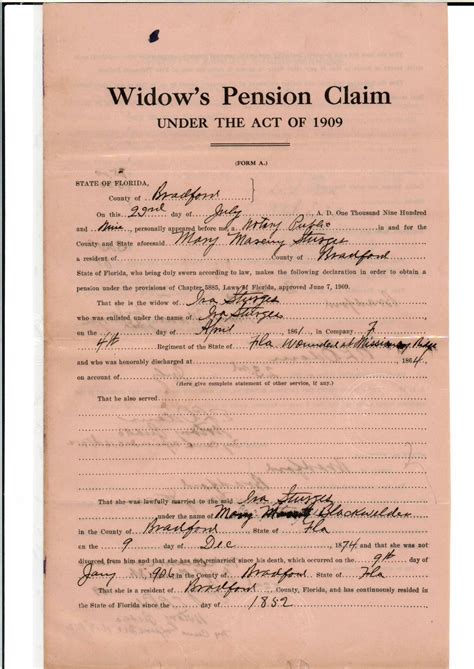 Widow's Pension Claim
UNDER THE ACT OF 1909
(FORM A.)
STATE OF FLORIDA,
County of Bradford
On this 23rd day of July A. D. One Thousand Nine Hundred
and Nine, personally appeared before me, a Notary Public in and for the
County and State aforesaid Mary Sturges
a resident of County of Bradford
State of Florida, who being duly sworn according to law, makes the following declaration in order to obtain a
pension under the provisions of Chapter 5885, Laws of Florida, approved June 7, 1909.
That she is the widow of Ira Sturges
who was enlisted under the name of Ira Sturges
on the day of April 1861, in Company F
4th Regiment of the State of Fla Wounded at Missionary Ridge
and who was honorably discharged at 1864
on account of
(Here give complete statement of other service, if any.)
That he also served
That she was lawfully married to the said Ira Sturges
under the name of Mary Blackwelder
in the County of Bradford State of Fla
on the 9 day of Dec 1874 and that she was not
divorced from him and that she has not remarried since his death, which occurred on the 9th day of
Jany 1906 in the County of Bradford State of Fla
That she is a resident of Bradford County, Florida, and has continuously resided
in the State of Florida since the day of 1852